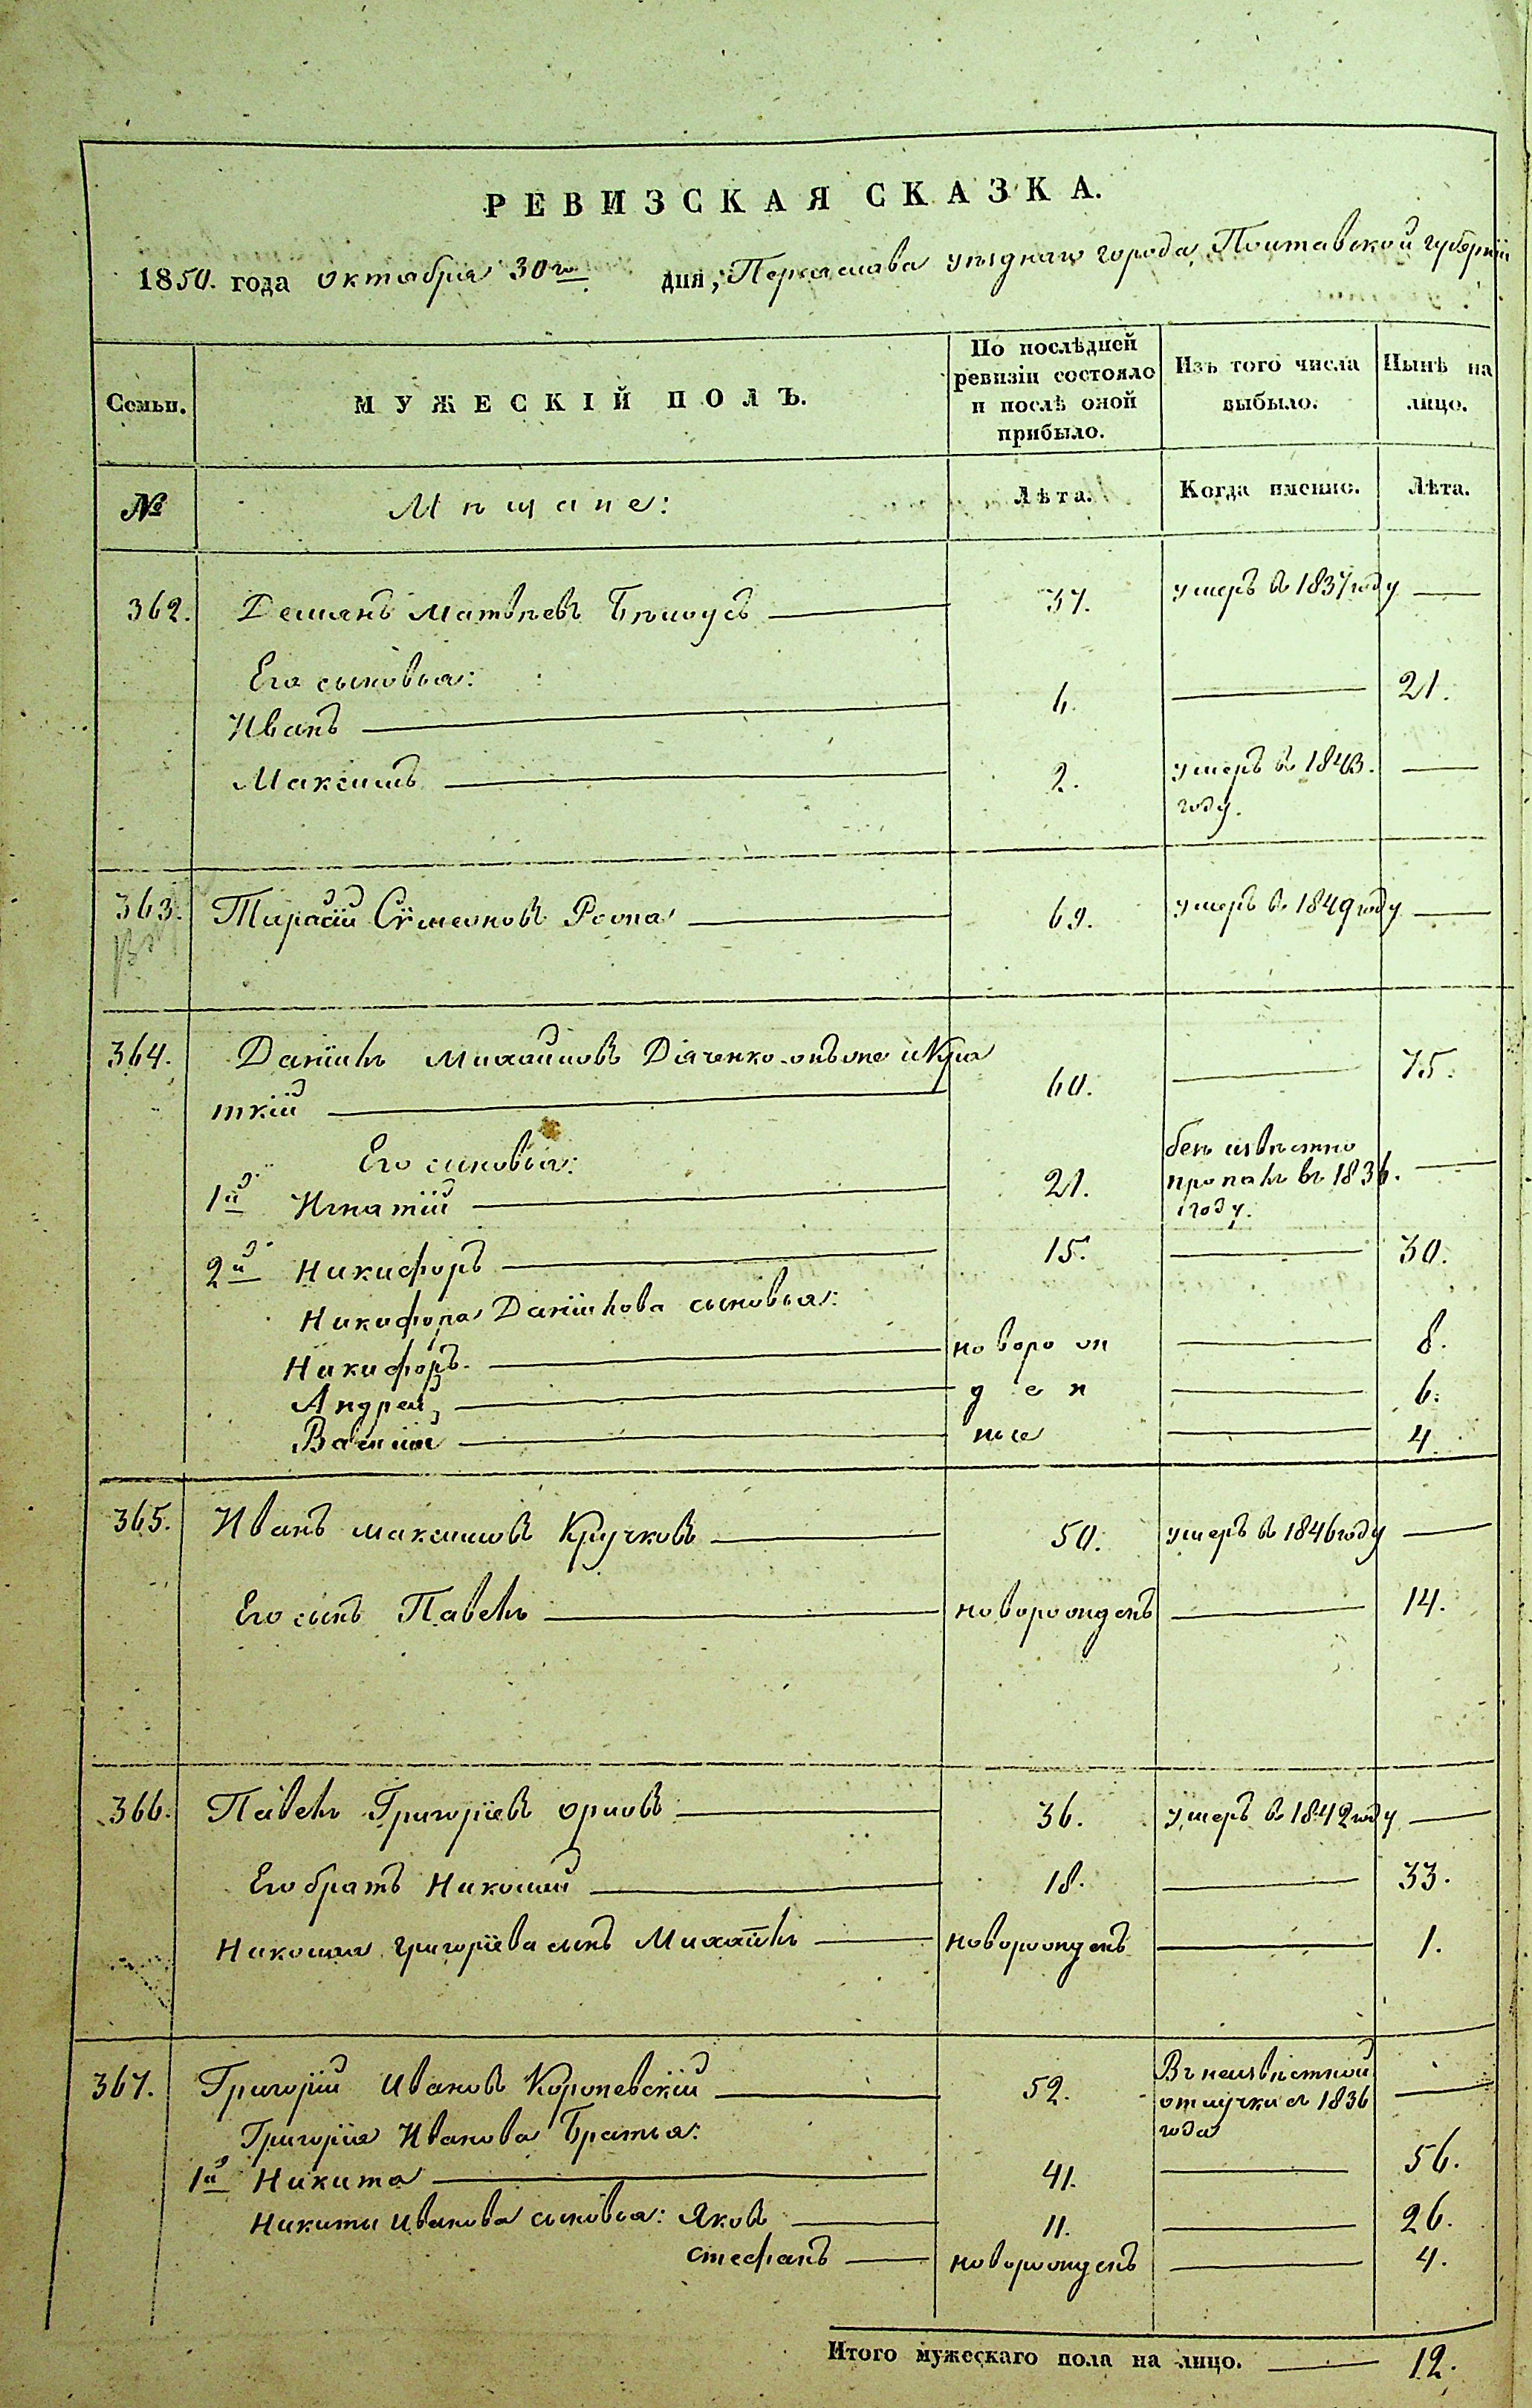 РЕВИЗСКАЯ СКАЗКА.
1850. года октября 30го дня, Переяслава уѣзднаго города, Полтавской губерніи
Семьи.
МУЖЕСКІЙ ПОЛЪ.
По послѣдней ревизіи состояло и послѣ оной прибыло.
Изъ того числа выбыло.
Нынѣ на лицо.
№
Мѣщане:
Лѣта.
Когда именно.
Лѣта.
362. Демянъ Матвѣевъ Бѣлоусъ 37. умеръ въ 1837 году
Его сыновья:
Иванъ 6. 21.
Максимъ 2. умеръ въ 1843.
году.
363. Тарасій Сѵмеоновъ 69. умеръ въ 1849 году
364. Даніилъ Михайловъ Діяченко онъже и Кра
ткій 60. 75.
Его сыновья:
1й Игнатій 21. безъ извѣстно
пропалъ въ 1836.
году.
2й Никифоръ 15. 30.
Никифора Даніилова сыновья:
Никифоръ. новорож 8.
Андрей, ден 6.
Василій ные 4.
365. Иванъ Максимовъ Кручковъ 50. умеръ въ 1846 году
Его сынъ Павелъ новорожденъ 14.
366. Павелъ Григорьевъ Орловъ 36. умеръ въ 1842 году
Его братъ Николай 18. 33.
Николая Григоріева сынъ Михаилъ новорожденъ 1.
367. Григорій Ивановъ Короневскій 52. Въ неизвѣстной
отлучки съ 1836
года
Григорія Иванова Братья:
1й Никита 41. 56.
Никиты Иванова сыновья: Яковъ 11. 26.
Стефанъ новорожденъ 4.
Итого мужескаго пола на лицо. 12.